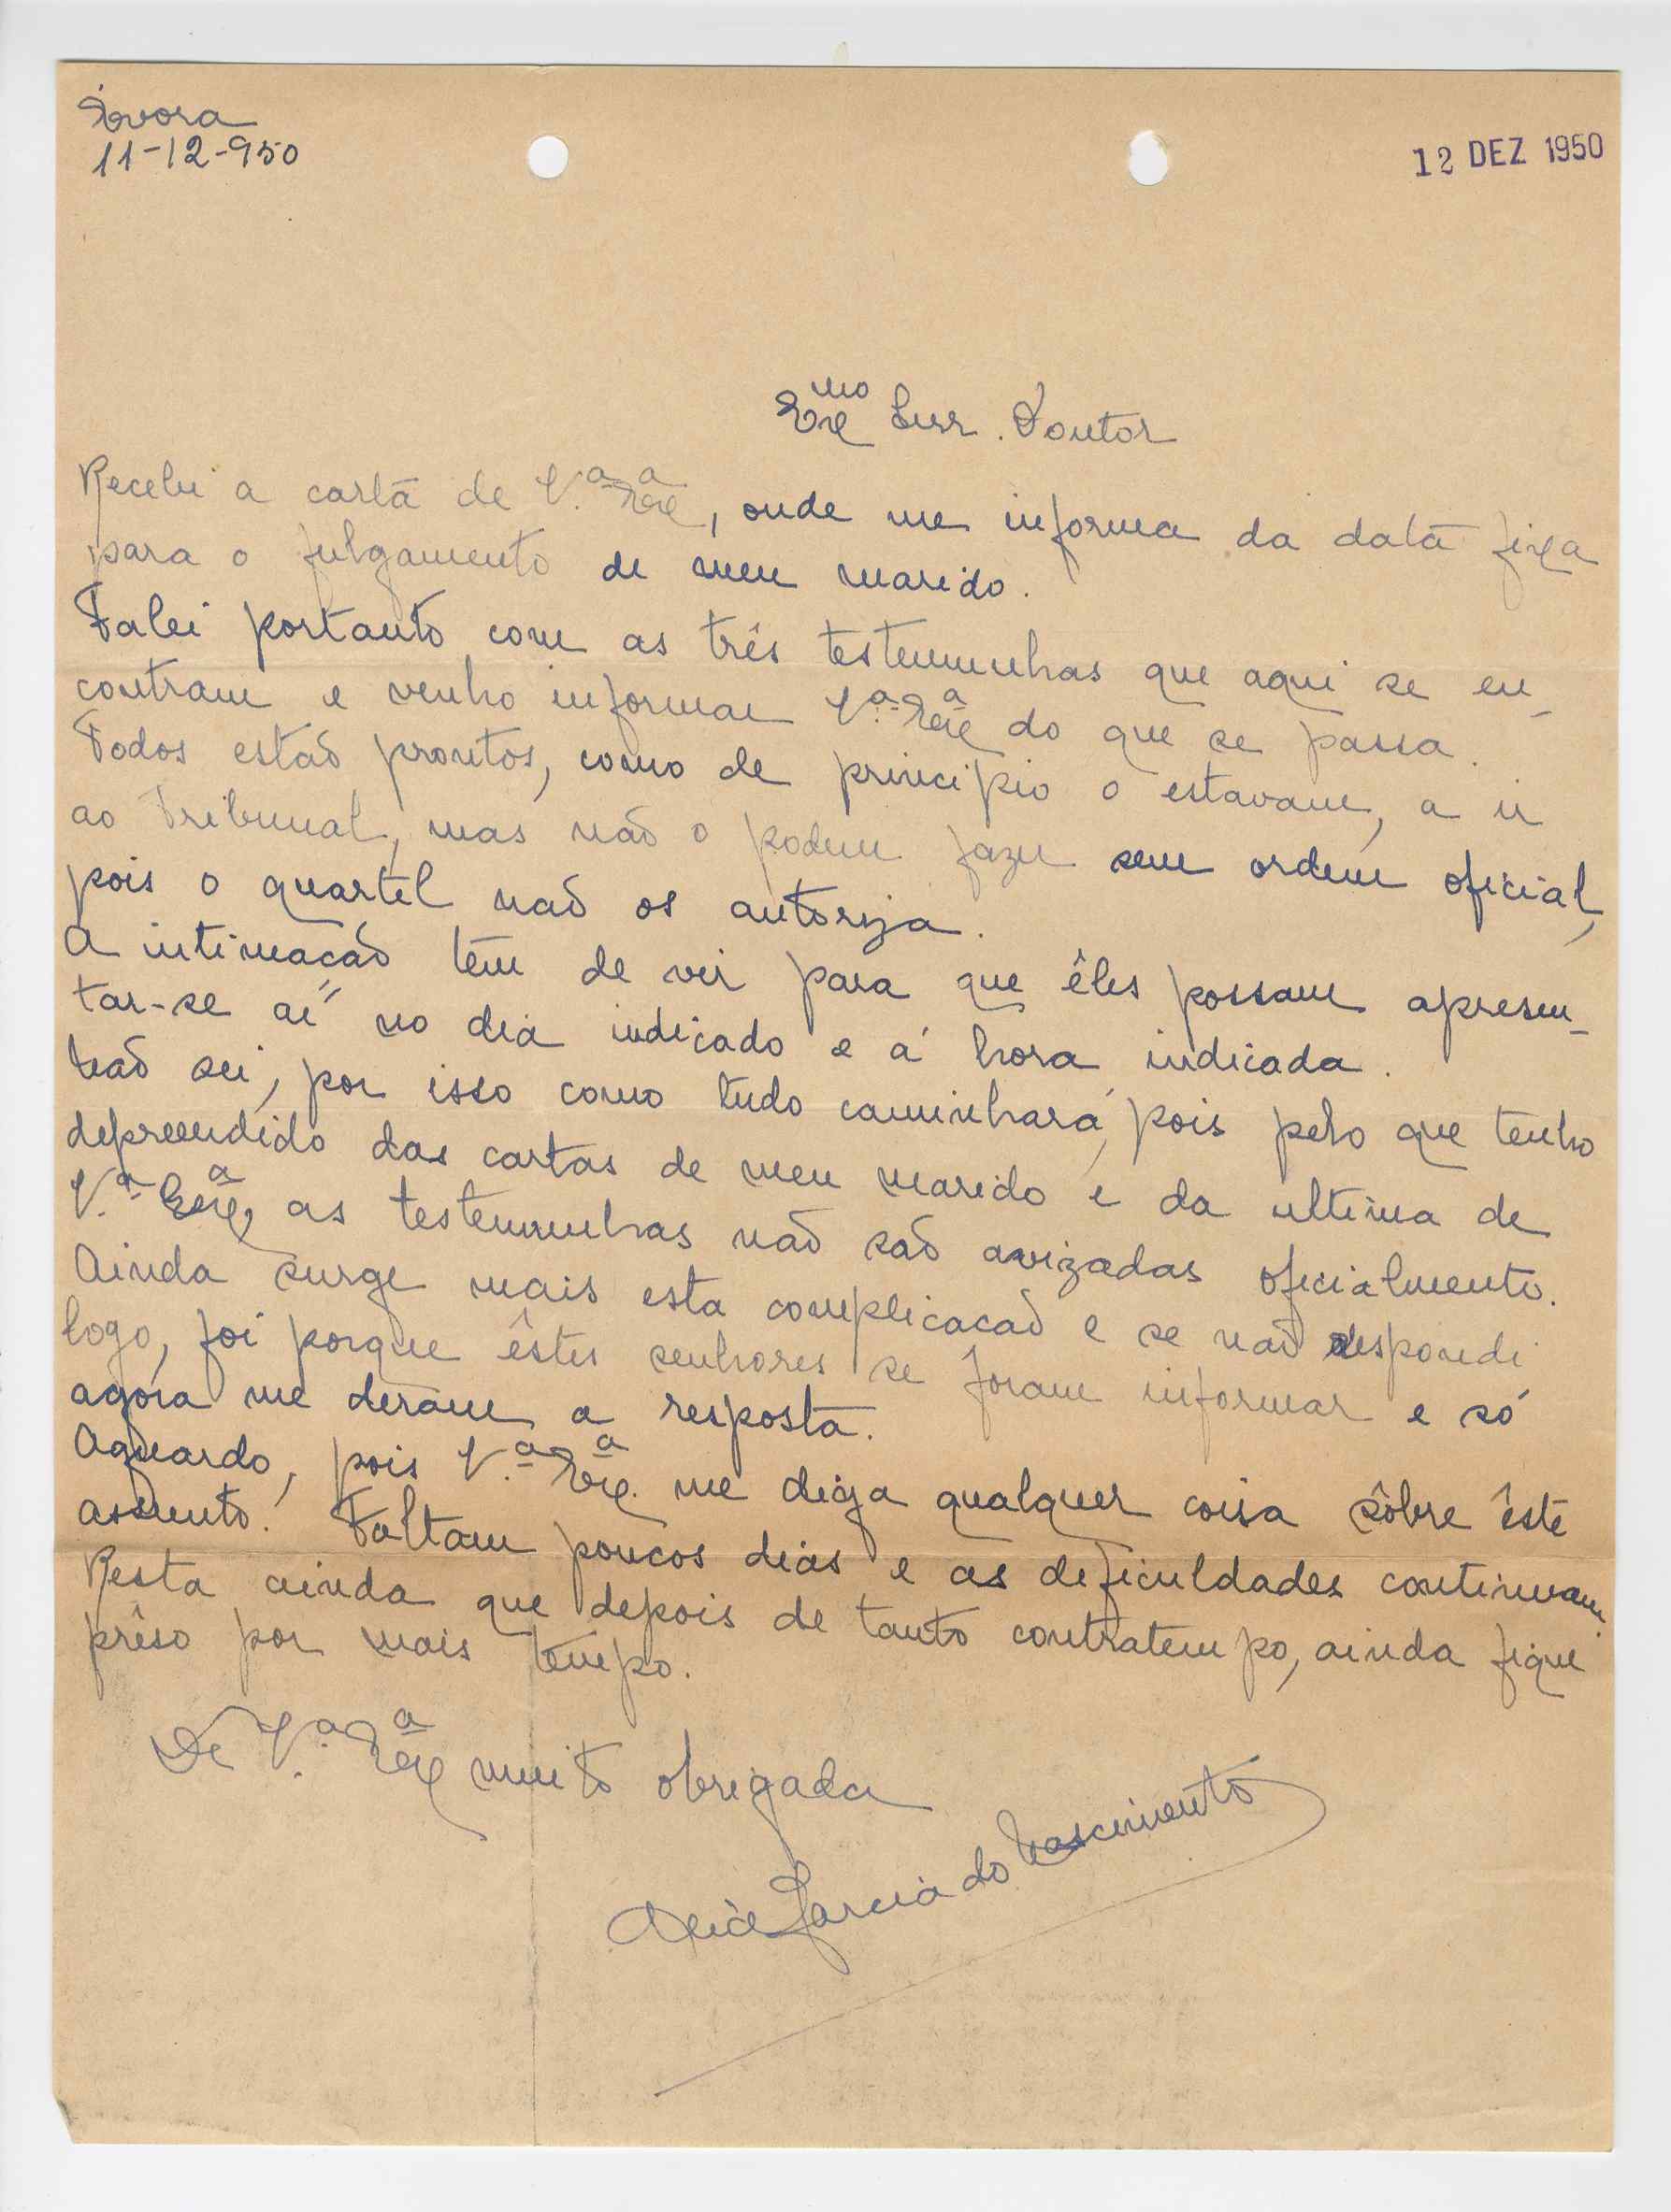 Évora
11-12-950
12 DEZ 1950
Exmo Snr. Doutor
Recebi a carta de V.ª Exª, onde me informa da data fixa
para o julgamento de meu marido.
Falei portanto com as três testemunhas que aqui se en-
contram e venho informar V.ª Exª do que se passa.
Todos estão prontos, como de principio o estavam, a ir
ao Tribunal, mas não o podem fazer sem ordem oficial,
pois o quartel não os autoriza.
A intimacão têm de vir para que êles possam apresen-
tar-se aí no dia indicado e á hora indicada.
Não sei, por isso como tudo caminhará, pois pelo que tenho
depreendido das cartas de meu marido e da ultima de
V.ª Exª, as testemunhas não são avizadas oficialmente.
Ainda surge mais esta complicacão e se não respondi
logo, foi porque êstes senhores se foram informar e só
agora me deram a resposta.
Aguardo, pois V.ª Exª. me diga qualquer coisa sôbre êste
assunto. Faltam poucos dias e as deficuldades continuam.
Resta ainda que depois de tanto contratempo, ainda fique
prêso por mais tempo.
De V.ª Exª muito obrigada
Alice Garcia do Nascimento